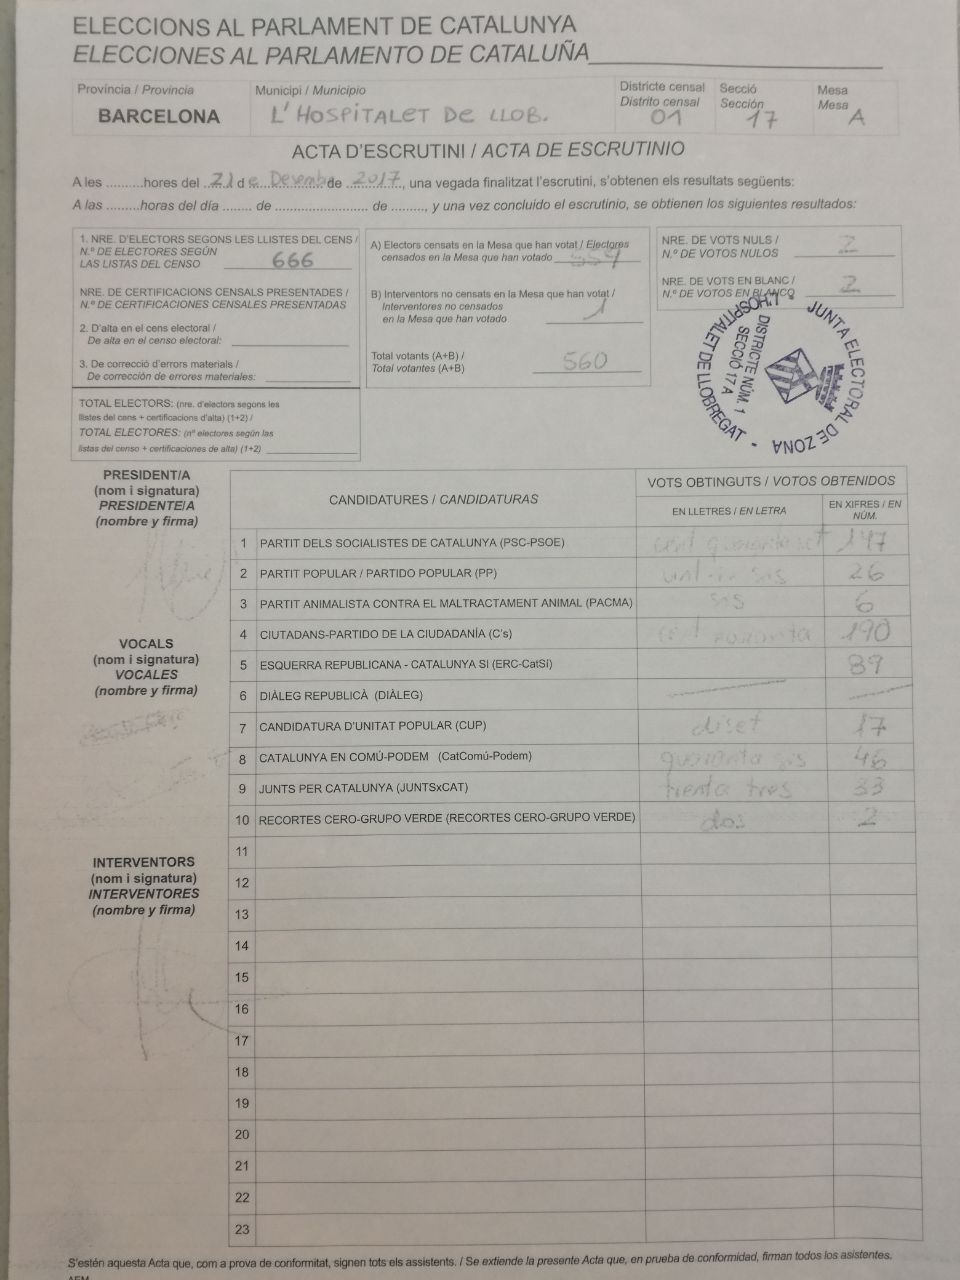 ELECCIONS AL PARLAMENT DE CATALUNYA
ELECCIONES AL PARLAMENTO DE CATALUÑA
Provincia / Provincia
BARCELONA
Municipi / Municipio
L'HOSPITALET DE LLOB.
Districte censal
Distrito censal
01
Secció
Sección
17
Mesa
Mesa
A
ACTA D'ESCRUTINI / ACTA DE ESCRUTINIO
A les .........hores del ..21 de Desembre de 2017, una vegada finalitzat l'escrutini, s'obtenen els resultats següents:
A las .........horas del día ........ de .......................... de ........., y una vez concluido el escrutinio, se obtienen los siguientes resultados:
1. NRE. D'ELECTORS SEGONS LES LLISTES DEL CENS /
N.º DE ELECTORES SEGÚN
LAS LISTAS DEL CENSO 666
NRE. DE CERTIFICACIONS CENSALS PRESENTADES /
N.º DE CERTIFICACIONES CENSALES PRESENTADAS
2. D'alta en el cens electoral /
De alta en el censo electoral:
3. De correcció d'errors materials /
De corrección de errores materiales:
TOTAL ELECTORS: (nre. d'electors segons les
llistes del cens + certificacions d'alta) (1+2) /
TOTAL ELECTORES: (nº electores según las
listas del censo + certificaciones de alta) (1+2)
A) Electors censats en la Mesa que han votat / Electores
censados en la Mesa que han votado 559
B) Interventors no censats en la Mesa que han votat /
Interventores no censados
en la Mesa que han votado 1
Total votants (A+B) /
Total votantes (A+B) 560
NRE. DE VOTS NULS /
N.º DE VOTOS NULOS 2
NRE. DE VOTS EN BLANC /
N.º DE VOTOS EN BLANCO 2
JUNTA ELECTORAL DE ZONA - L'HOSPITALET DE LLOBREGAT -
DISTRICTE NÚM. 1
SECCIÓ 17 A
PRESIDENT/A
(nom i signatura)
PRESIDENTE/A
(nombre y firma)
VOCALS
(nom i signatura)
VOCALES
(nombre y firma)
INTERVENTORS
(nom i signatura)
INTERVENTORES
(nombre y firma)
CANDIDATURES / CANDIDATURAS
VOTS OBTINGUTS / VOTOS OBTENIDOS
EN LLETRES / EN LETRA
EN XIFRES / EN
NÚM.
1 PARTIT DELS SOCIALISTES DE CATALUNYA (PSC-PSOE) cent quaranta set 147
2 PARTIT POPULAR / PARTIDO POPULAR (PP) vint-i-sis 26
3 PARTIT ANIMALISTA CONTRA EL MALTRACTAMENT ANIMAL (PACMA) sis 6
4 CIUTADANS-PARTIDO DE LA CIUDADANÍA (C's) cent noranta 190
5 ESQUERRA REPUBLICANA - CATALUNYA SI (ERC-CatSÍ) 89
6 DIÀLEG REPUBLICÀ (DIÀLEG)
7 CANDIDATURA D'UNITAT POPULAR (CUP) diset 17
8 CATALUNYA EN COMÚ-PODEM (CatComú-Podem) quaranta sis 46
9 JUNTS PER CATALUNYA (JUNTSxCAT) trenta tres 33
10 RECORTES CERO-GRUPO VERDE (RECORTES CERO-GRUPO VERDE) dos 2
11
12
13
14
15
16
17
18
19
20
21
22
23
S'estén aquesta Acta que, com a prova de conformitat, signen tots els assistents. / Se extiende la presente Acta que, en prueba de conformidad, firman todos los asistentes.